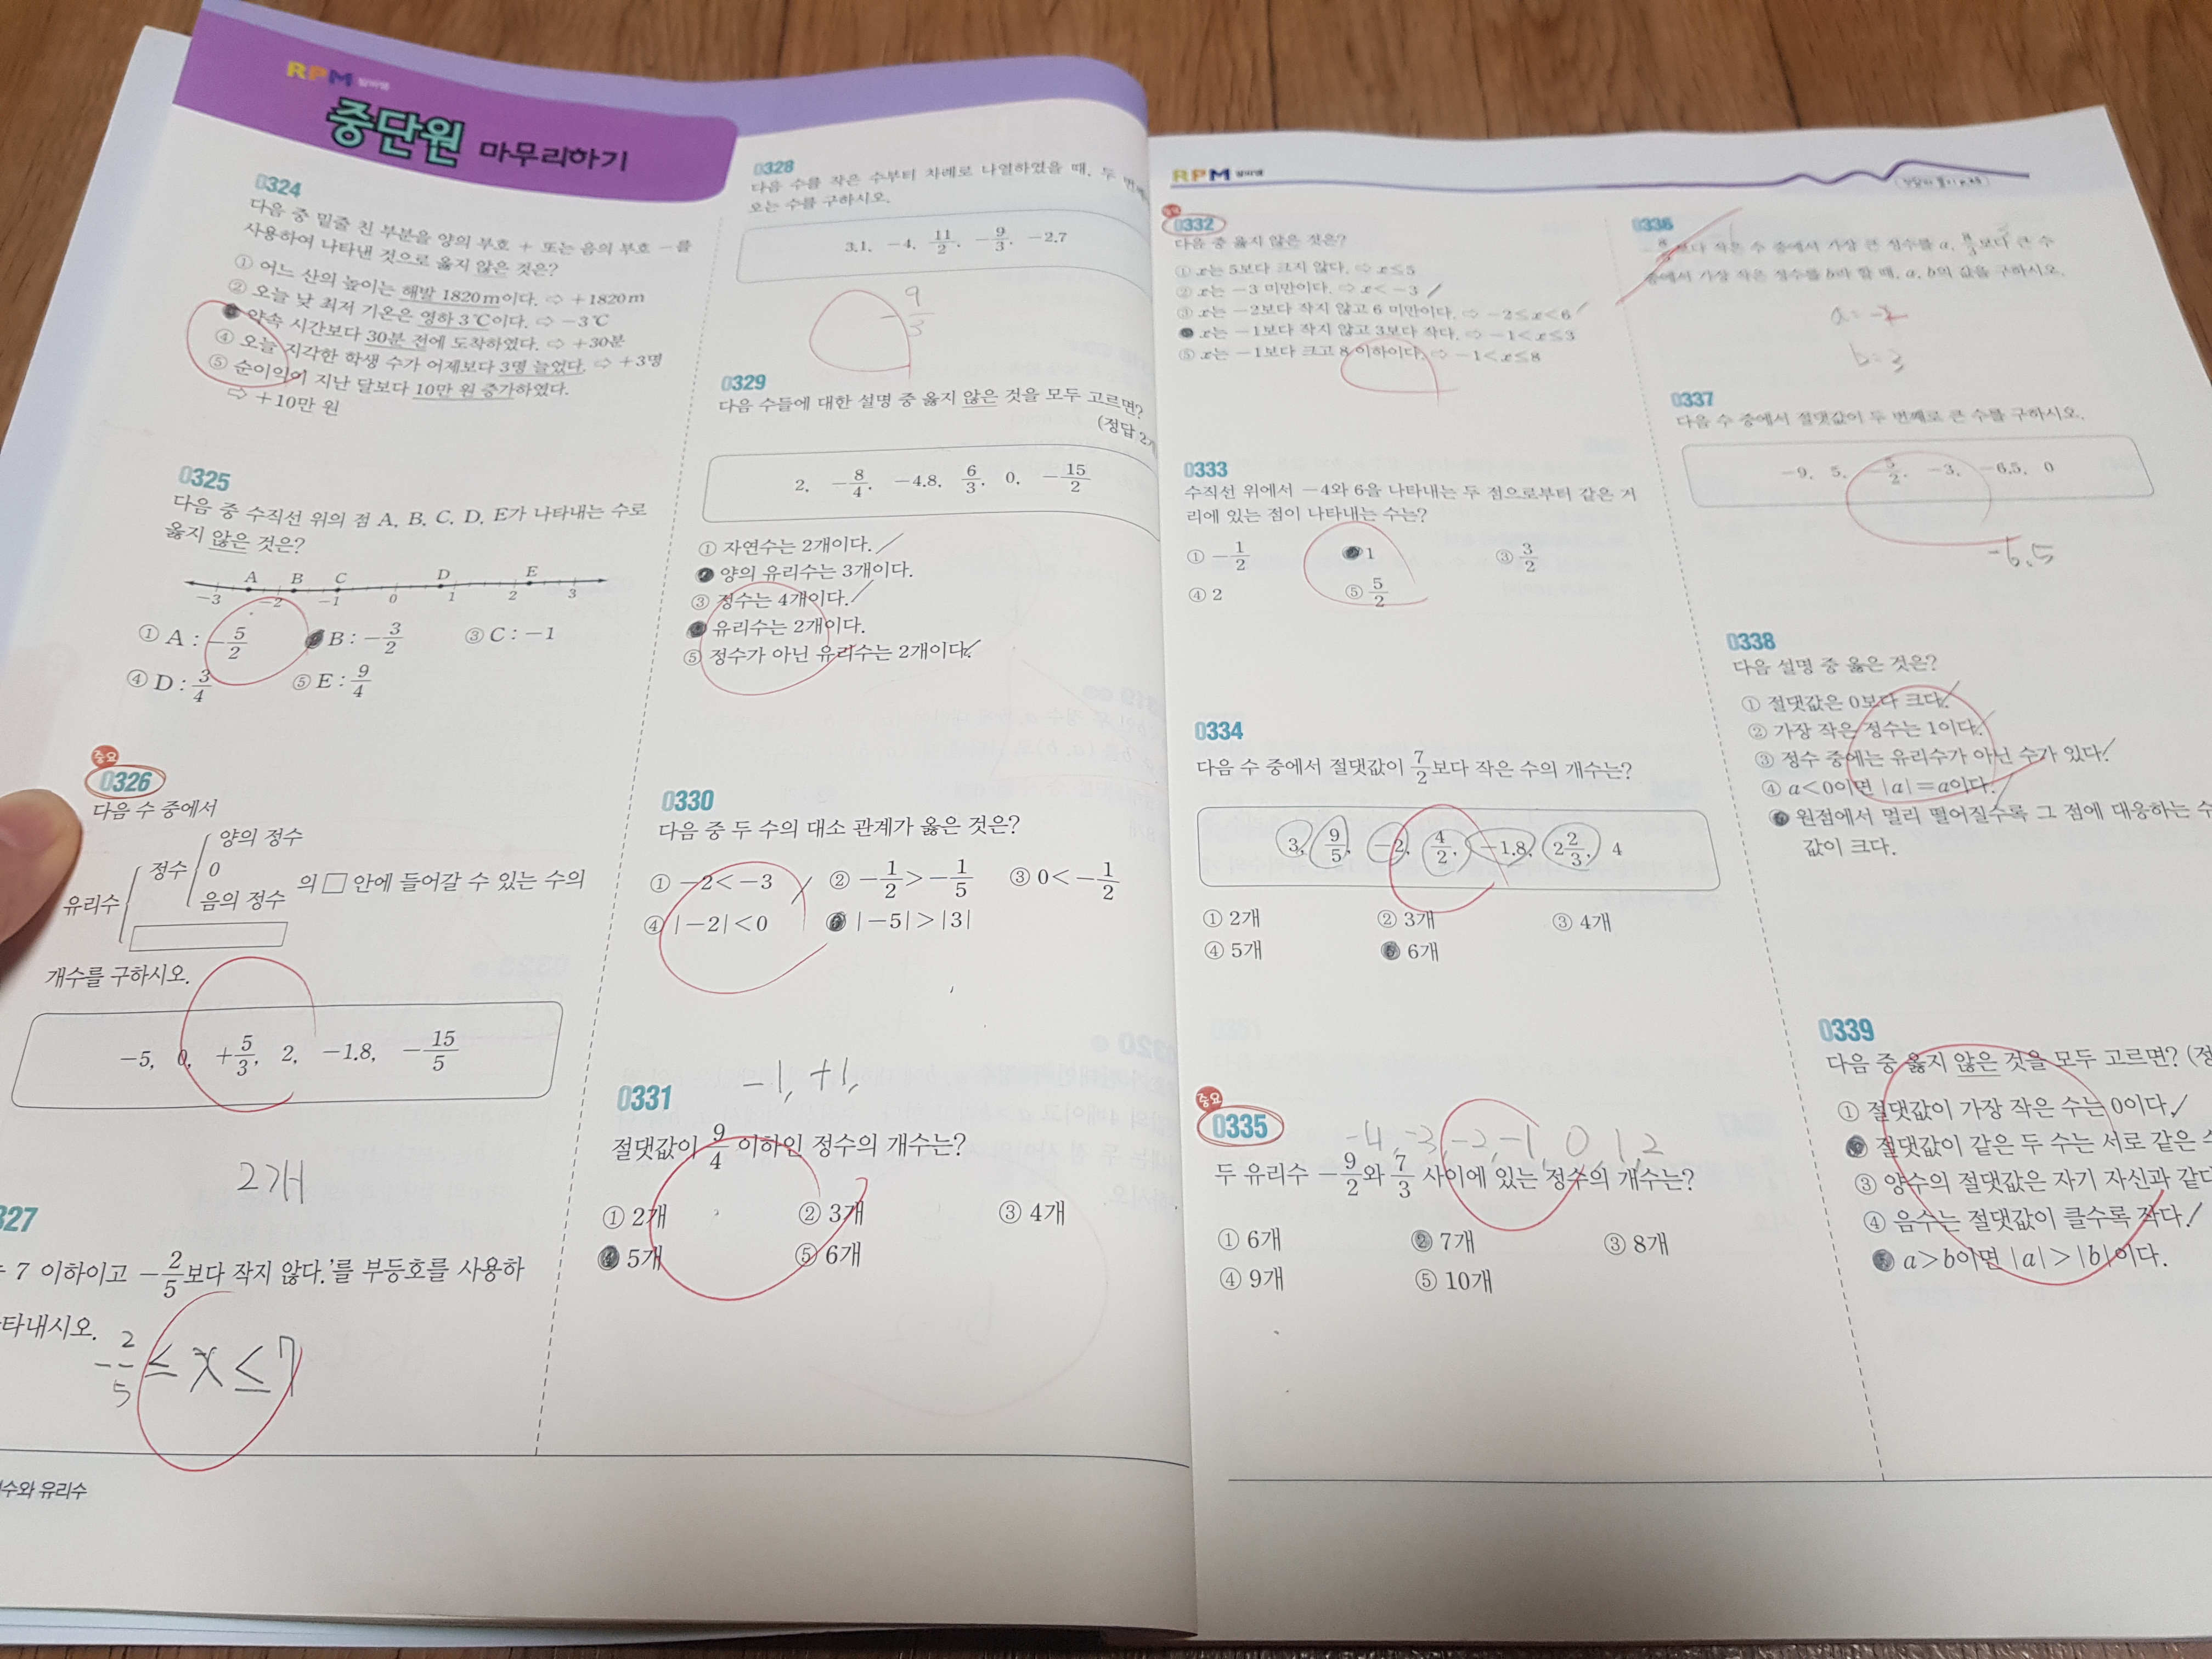 RPM 알피엠
중단원 마무리하기
0324
다음 중 밑줄 친 부분을 양의 부호 + 또는 음의 부호 -를
사용하여 나타낸 것으로 옳지 않은 것은?
① 어느 산의 높이는 해발 1820 m이다. ⇨ +1820 m
② 오늘 낮 최저 기온은 영하 3℃이다. ⇨ -3℃
약속 시간보다 30분 전에 도착하였다. ⇨ +30분
④ 오늘 지각한 학생 수가 어제보다 3명 늘었다. ⇨ +3명
⑤ 순이익이 지난 달보다 10만 원 증가하였다.
⇨ +10만 원
0325
다음 중 수직선 위의 점 A, B, C, D, E가 나타내는 수로
옳지 않은 것은?
A B C D E
-3 -2 -1 0 1 2 3
① A : -5/2 B : -3/2 ③ C : -1
④ D : 3/4 ⑤ E : 9/4
중요
0326
다음 수 중에서
양의 정수
정수 0
음의 정수
유리수
의 □ 안에 들어갈 수 있는 수의
개수를 구하시오.
-5, 0, +5/3, 2, -1.8, -15/5
2개
327
7 이하이고 -2/5보다 작지 않다.'를 부등호를 사용하
타내시오.
-2/5 ≤ x ≤ 7
수와 유리수
0328
다음 수를 작은 수부터 차례로 나열하였을 때, 두 번째
오는 수를 구하시오.
3.1, -4, 11/2, -9/3, -2.7
-9/3
0329
다음 수들에 대한 설명 중 옳지 않은 것을 모두 고르면?
(정답 2개
2, -8/4, -4.8, 6/3, 0, -15/2
① 자연수는 2개이다.
양의 유리수는 3개이다.
③ 정수는 4개이다.
유리수는 2개이다.
⑤ 정수가 아닌 유리수는 2개이다.
0330
다음 중 두 수의 대소 관계가 옳은 것은?
① -2<-3 ② -1/2>-1/5 ③ 0<-1/2
④ |-2|<0 |-5|>|3|
-1, +1,
0331
절댓값이 9/4 이하인 정수의 개수는?
① 2개 ② 3개 ③ 4개
④ 5개 ⑤ 6개
RPM 알피엠
중요
0332
다음 중 옳지 않은 것은?
① x는 5보다 크지 않다. ⇨ x≤5
② x는 -3 미만이다. ⇨ x<-3
③ x는 -2보다 작지 않고 6 미만이다. ⇨ -2≤x<6
x는 -1보다 작지 않고 3보다 작다. ⇨ -1<x≤3
⑤ x는 -1보다 크고 8 이하이다. ⇨ -1<x≤8
0333
수직선 위에서 -4와 6을 나타내는 두 점으로부터 같은 거
리에 있는 점이 나타내는 수는?
① -1/2 1 ③ 3/2
④ 2 ⑤ 5/2
0334
다음 수 중에서 절댓값이 7/2보다 작은 수의 개수는?
3, 9/5, -2, 4/2, -1.8, 2 2/3, 4
① 2개 ② 3개 ③ 4개
④ 5개 6개
중요
0335
-4, -3 -2, -1, 0, 1, 2
두 유리수 -9/2와 7/3 사이에 있는 정수의 개수는?
① 6개 ② 7개 ③ 8개
④ 9개 ⑤ 10개
0336
보다 작은 수 중에서 가장 큰 정수를 a, 8/3보다 큰 수
중에서 가장 작은 정수를 b라 할 때, a, b의 값을 구하시오.
b=3
0337
다음 수 중에서 절댓값이 두 번째로 큰 수를 구하시오.
-9, 5, -5/2, -3, -6.5, 0
-6.5
0338
다음 설명 중 옳은 것은?
① 절댓값은 0보다 크다.
② 가장 작은 정수는 1이다.
③ 정수 중에는 유리수가 아닌 수가 있다.
④ a<0이면 |a|=a이다.
원점에서 멀리 떨어질수록 그 점에 대응하는 수
값이 크다.
0339
다음 중 옳지 않은 것을 모두 고르면? (정
① 절댓값이 가장 작은 수는 0이다.
절댓값이 같은 두 수는 서로 같은 수
③ 양수의 절댓값은 자기 자신과 같다
④ 음수는 절댓값이 클수록 작다.
a>b이면 |a|>|b|이다.